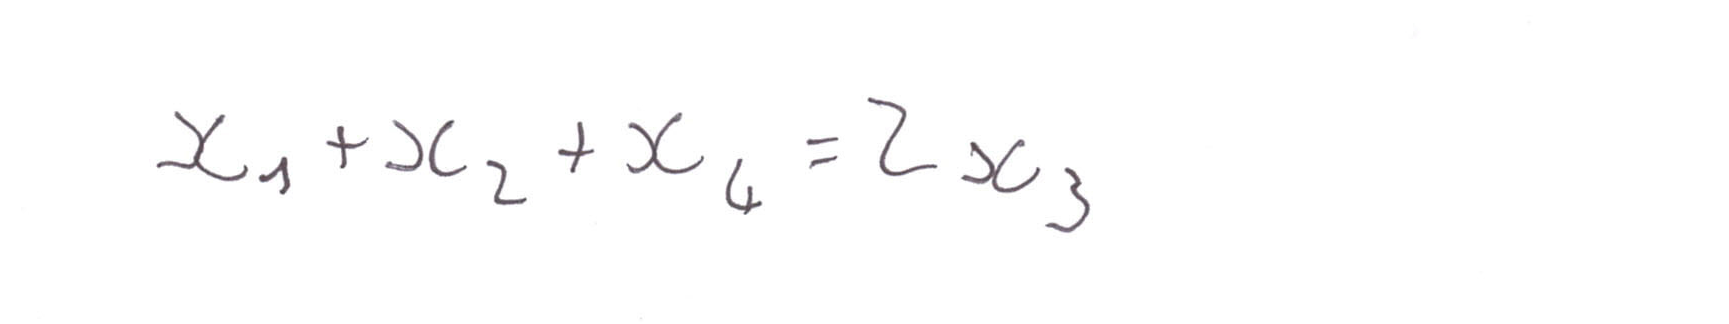 x₁ + x₂ + x₄ = 2x₃